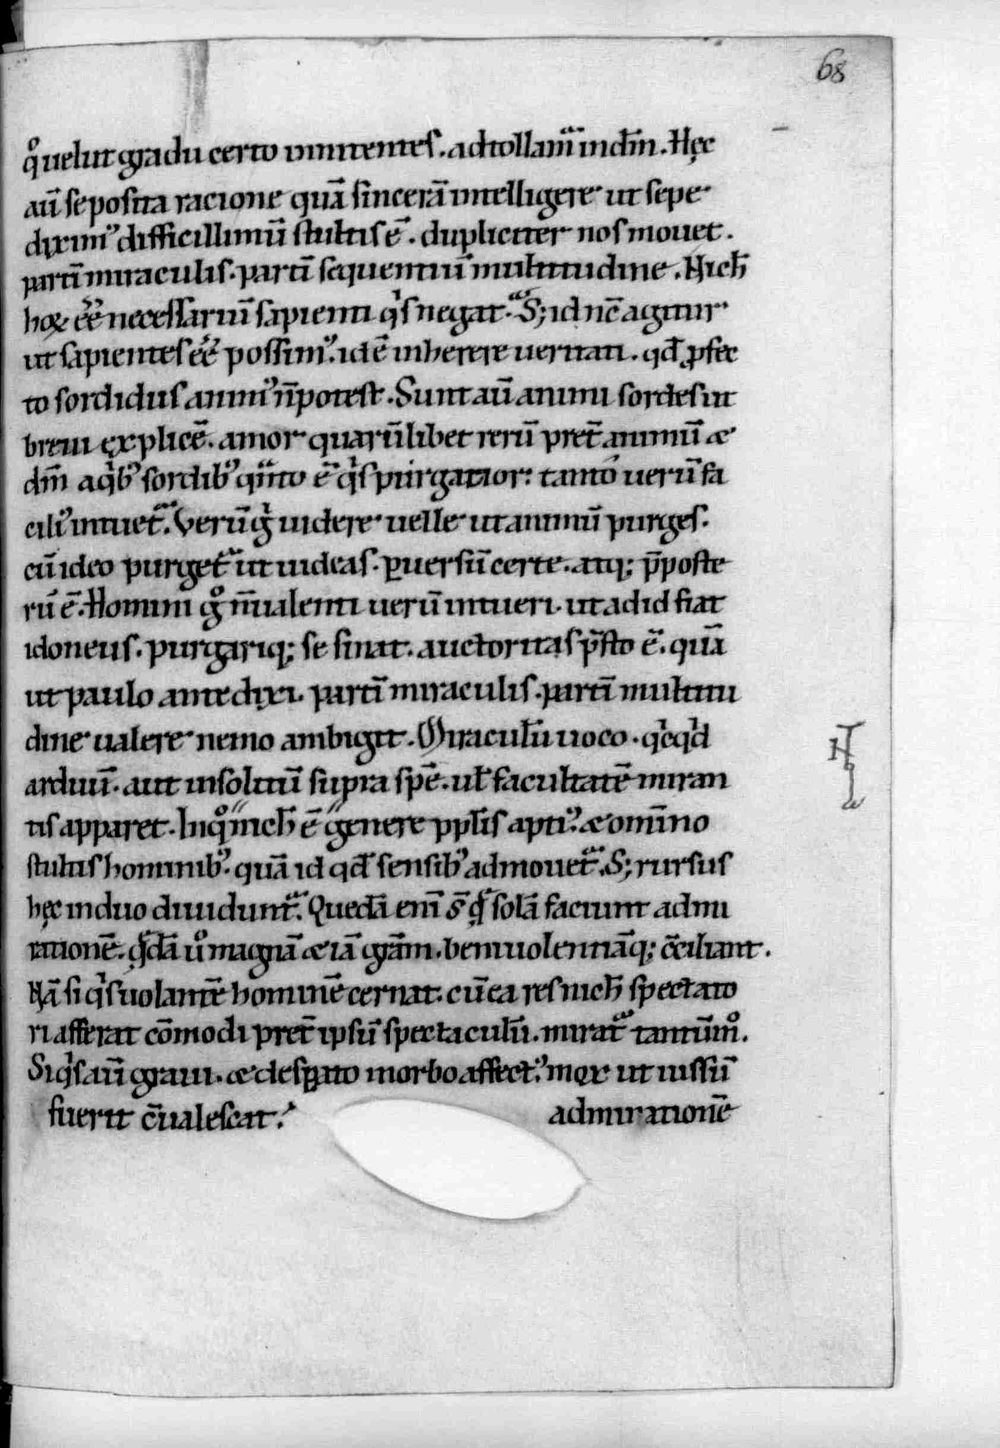 68
qͦ uelut gradu certo innitentes. adtollam̃ in dm̃. Hęc
aũ seposita racione quã sincerã intelligere ut sepe
diximꝰ difficillimũ stultis ẽ. dupliciter nos mouet.
partĩ miraculis. partĩ sequentiũ multitudine. Nich̃
hoꝝ eẽ necessariũ sapienti qͥs negat. S; id nc̃ agitur
ut sapientes eẽ possimꝰ. id ẽ inherere ueritati. qd̃ ꝓfec
to sordidus animꝰ ñ potest. Sunt aũ animi sordes ut
breui explicẽ. amor quarũlibet rerũ pret̃ animũ ⁊
dm̃ a qͥbꝰ sordibꝰ qͣnto ẽ qͥs purgatior: tanto uerũ fa
ciliꝰ intuet̃. Verũ gͥ uidere uelle ut animũ purges.
cũ ideo purget̃ ut uideas. ꝑuersũ certe. atq; p̃poste
rũ ẽ. Homini gͦ ñ ualenti uerũ intueri. ut ad id fiat
idoneus. purgariq; se sinat. auctoritas p̃sto ẽ. quã
ut paulo ante dixi. partĩ miraculis. partĩ multitu
dine ualere nemo ambigit. Miraculũ uoco. qͥcqͥd
arduũ. aut insolitũ supra spẽ. ul̃ facultatẽ miran
tis apparet. In qͦ nich̃ ẽ genere ppl̃is aptiꝰ. ⁊ omĩno
stultis hominibꝰ. quã id qd̃ sensibꝰ admouet̃. S; rursus
hęc in duo diuidunt̃. Quedã eni͂ s̃ q̨ͣ solã faciunt admi
rationẽ. q̨ͣdã uͦ magnã ⁊iã gr̃am. beniuolentiãq; cc̃iliant.
Nã si qͥs uolantẽ hominẽ cernat. cũ ea res nich̃ spectato
ri afferat cõmodi pret̃ ipsũ spectaculũ. mirat̃ tantũmͦ.
Si qͥs aũ graui. ⁊ desꝑato morbo affectꝰ. mox ut iussũ
fuerit c̃ualescat. admirationẽ